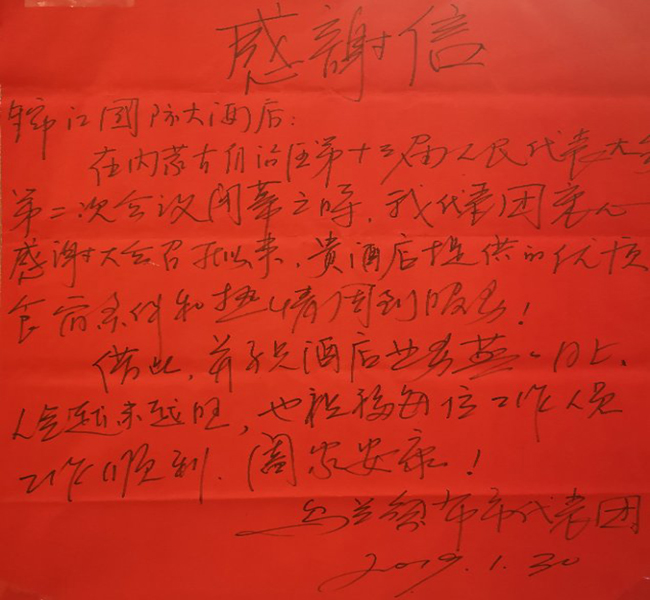 感謝信
锦江國际大酒店：
在内蒙古自治区第十三届人民代表大会
第二次会议闭幕之时，我代表团衷心
感谢大会召开以来，贵酒店提供的优质
食宿条件和热情周到服务！
借此，并祝酒店业务蒸蒸日上、
人气越来越旺，也祝福每位工作人员
工作顺利、阖家安康！
乌兰察布市代表团
2019.1.30